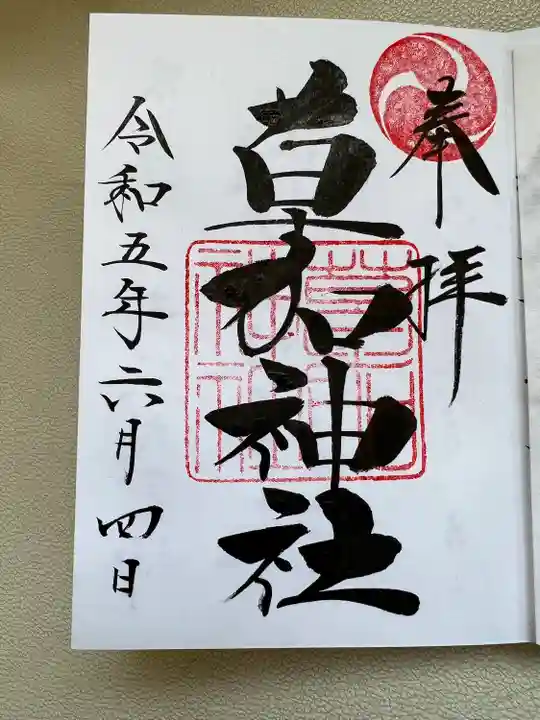 奉拝
神社
令和五年六月四日